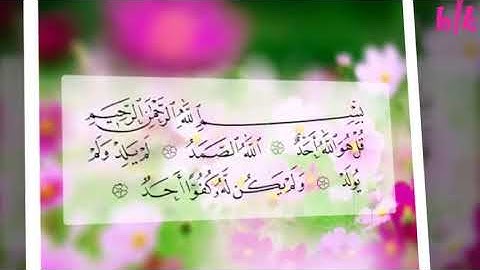 b/k
بِسْمِ اللَّهِ الرَّحْمَٰنِ الرَّحِيمِ
قُلْ هُوَ اللَّهُ أَحَدٌ ۞ اللَّهُ الصَّمَدُ ۞ لَمْ يَلِدْ وَلَمْ
يُولَدْ ۞ وَلَمْ يَكُن لَّهُ كُفُوًا أَحَدٌ ۞